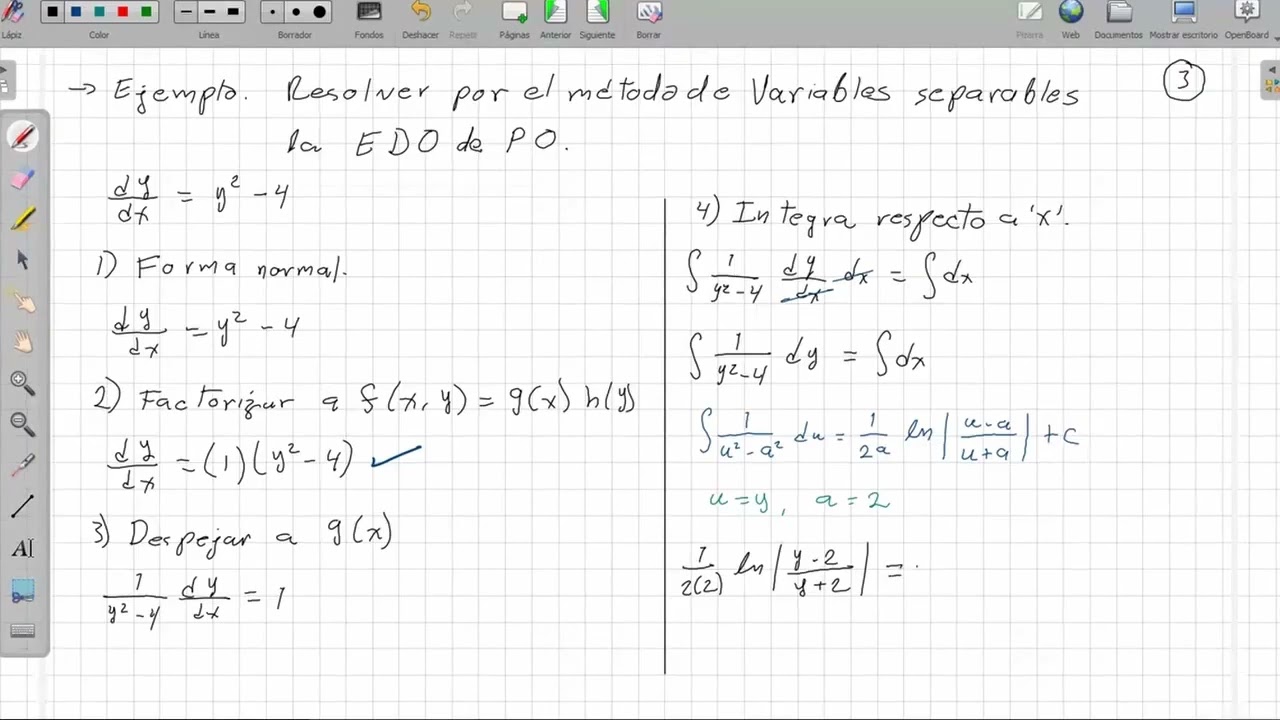 Lápiz Color Línea Borrador Fondos Deshacer Repetir Páginas Anterior Siguiente Borrar Pizarra Web Documentos Mostrar escritorio OpenBoard
→ Ejemplo. Resolver por el método de Variables separables
la EDO de PO.
3
dy/dx = y² - 4
1) Forma normal.
dy/dx = y² - 4
2) Factorizar a f(x, y) = g(x) h(y)
dy/dx = (1)(y² - 4) ✓
3) Despejar a g(x)
1/(y² - 4) dy/dx = 1
4) Integra respecto a 'x'.
∫ 1/(y² - 4) dy/dx dx = ∫ dx
∫ 1/(y² - 4) dy = ∫ dx
∫ 1/(u² - a²) du = 1/2a ln |(u - a)/(u + a)| + C
u = y, a = 2
1/2(2) ln |(y - 2)/(y + 2)| =
AI